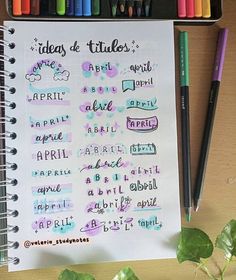 ideas de títulos
april Abril april
APRIL ABRIL april
APRIL abril APRIL
APRIL ABRIL APRIL
april ABRIL APRIL
APRIL abril April
APRIL abril april
april abril abril
APRIL abril APRIL
APRIL Abril april
@valeria_studynotes